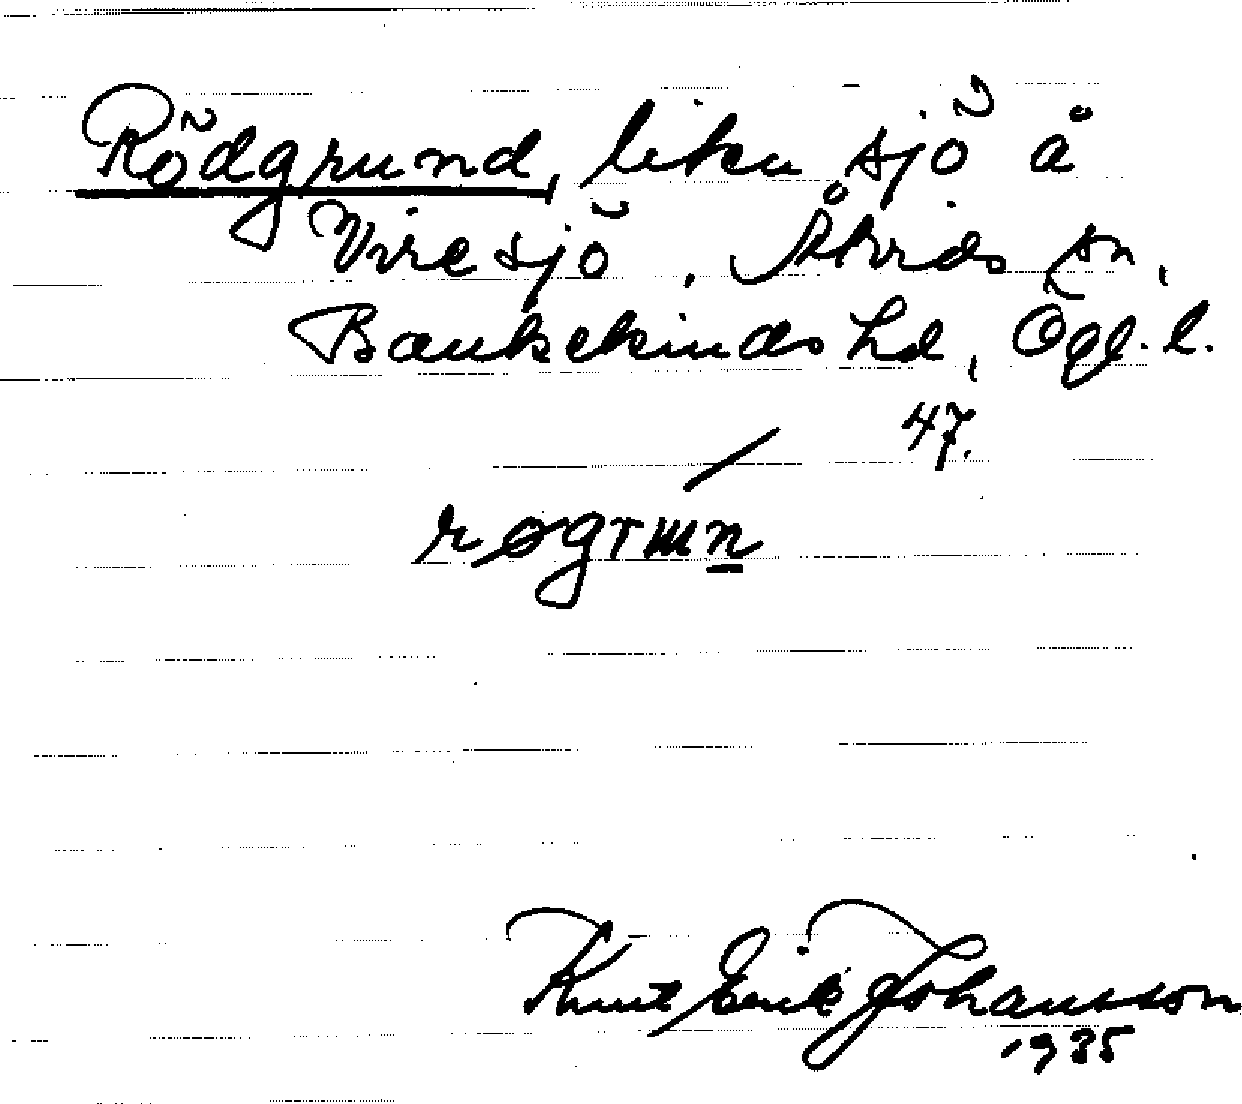 Rödgrund, liten sjö å
Viresjö, Åtvids sn,
Bankekinds hd, Ögl. l.
47.
Knut Erik Johansson
1935